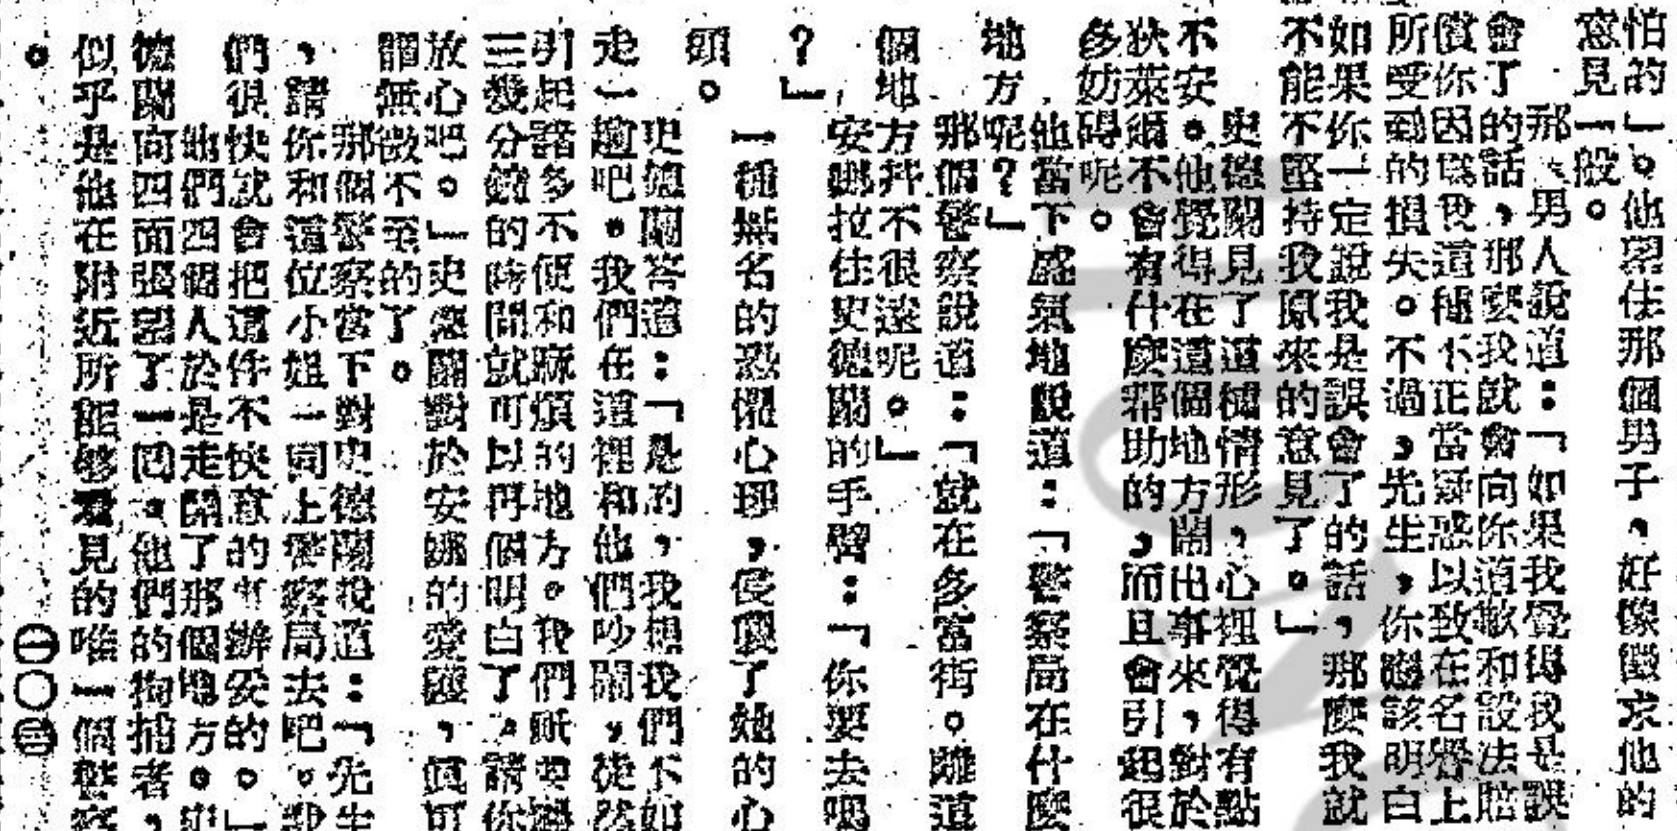 怕的」。他望住那個男子，好像徵求他的
意見一般。
那男人說道：「如果我覺得我是誤
會了的話，那麼我就會向你道歉和設法賠
償你因為我這種不正當疑惑以致在名譽上
所受到的損失。不過，先生，你應該明白
如果你一定說我是誤會了的話，那麼我就
不能不堅持我原來的意見了。」
史德蘭見了這樣情形，心裡覺得有點
不安。他覺得在這個地方鬧出事來，對於
狄萊頓不會有什麼幫助的，而且會引起很
多妨礙呢。
他當下盛氣地說道：「警察局在什麼
地方呢？」
那個警察說道：「就在多富街。離這
個地方并不很遠呢。」
安娜拉住史德蘭的手臂：「你要去嗎
？」
一種無名的恐懼心理，侵襲了她的心
頭。
史德蘭答道：「是的，我想我們不如
走一趟吧。我們在這裡和他們吵鬧，徒然
引起諸多不便和麻煩的地方。我們祇要
三幾分鐘的時間就可以再個明白了。請你
放心吧。」史德蘭對於安娜的愛護，真可
謂無微不至的了。
那個警察當下對史德蘭說道：「先生
，請你和這位小姐一同上警察局去吧。我
們很快就會把這件不快意的事辦妥的。」
他們四個人於是走開了那個地方。史
德蘭向四面張望了一回。他們的拘捕者，
似乎是他在附近所能够看見的唯一個警察
。
㊀〇㊂